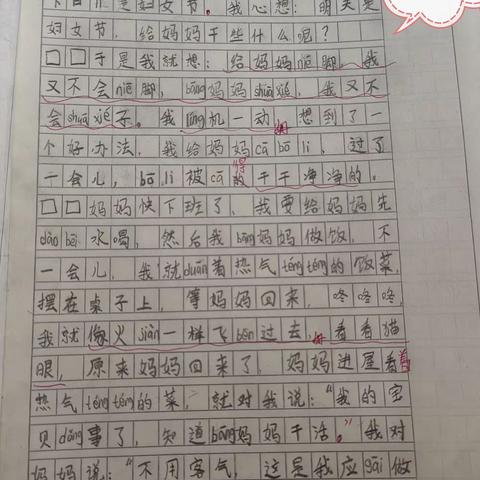 妇女节。给妈妈干些什么呢?
于是我就想:给妈妈洗脚,我
又不会洗脚,bāng妈妈shuā xié,我又不
会shuā xié子。我líng机一动,想到了一
个好办法,我给妈妈cā bō li,过了
一会儿,bō li被cā得干干净净的。
妈妈快下班了,我要给妈妈先
dào bēi水喝,然后我bāng妈妈做饭,不
一会儿,我就duān着热气téng téng的饭菜,
摆在桌子上,等妈妈回来,咚咚咚,
我就像火jiàn一样飞bēn过去,看看猫
眼,原来妈妈回来了,妈妈进屋看着
热气téng téng的菜,就对我说:“我的宝
贝dǒng事了,知道bāng妈妈干活。”我对
妈妈说:“不用客气,这是我应gāi做